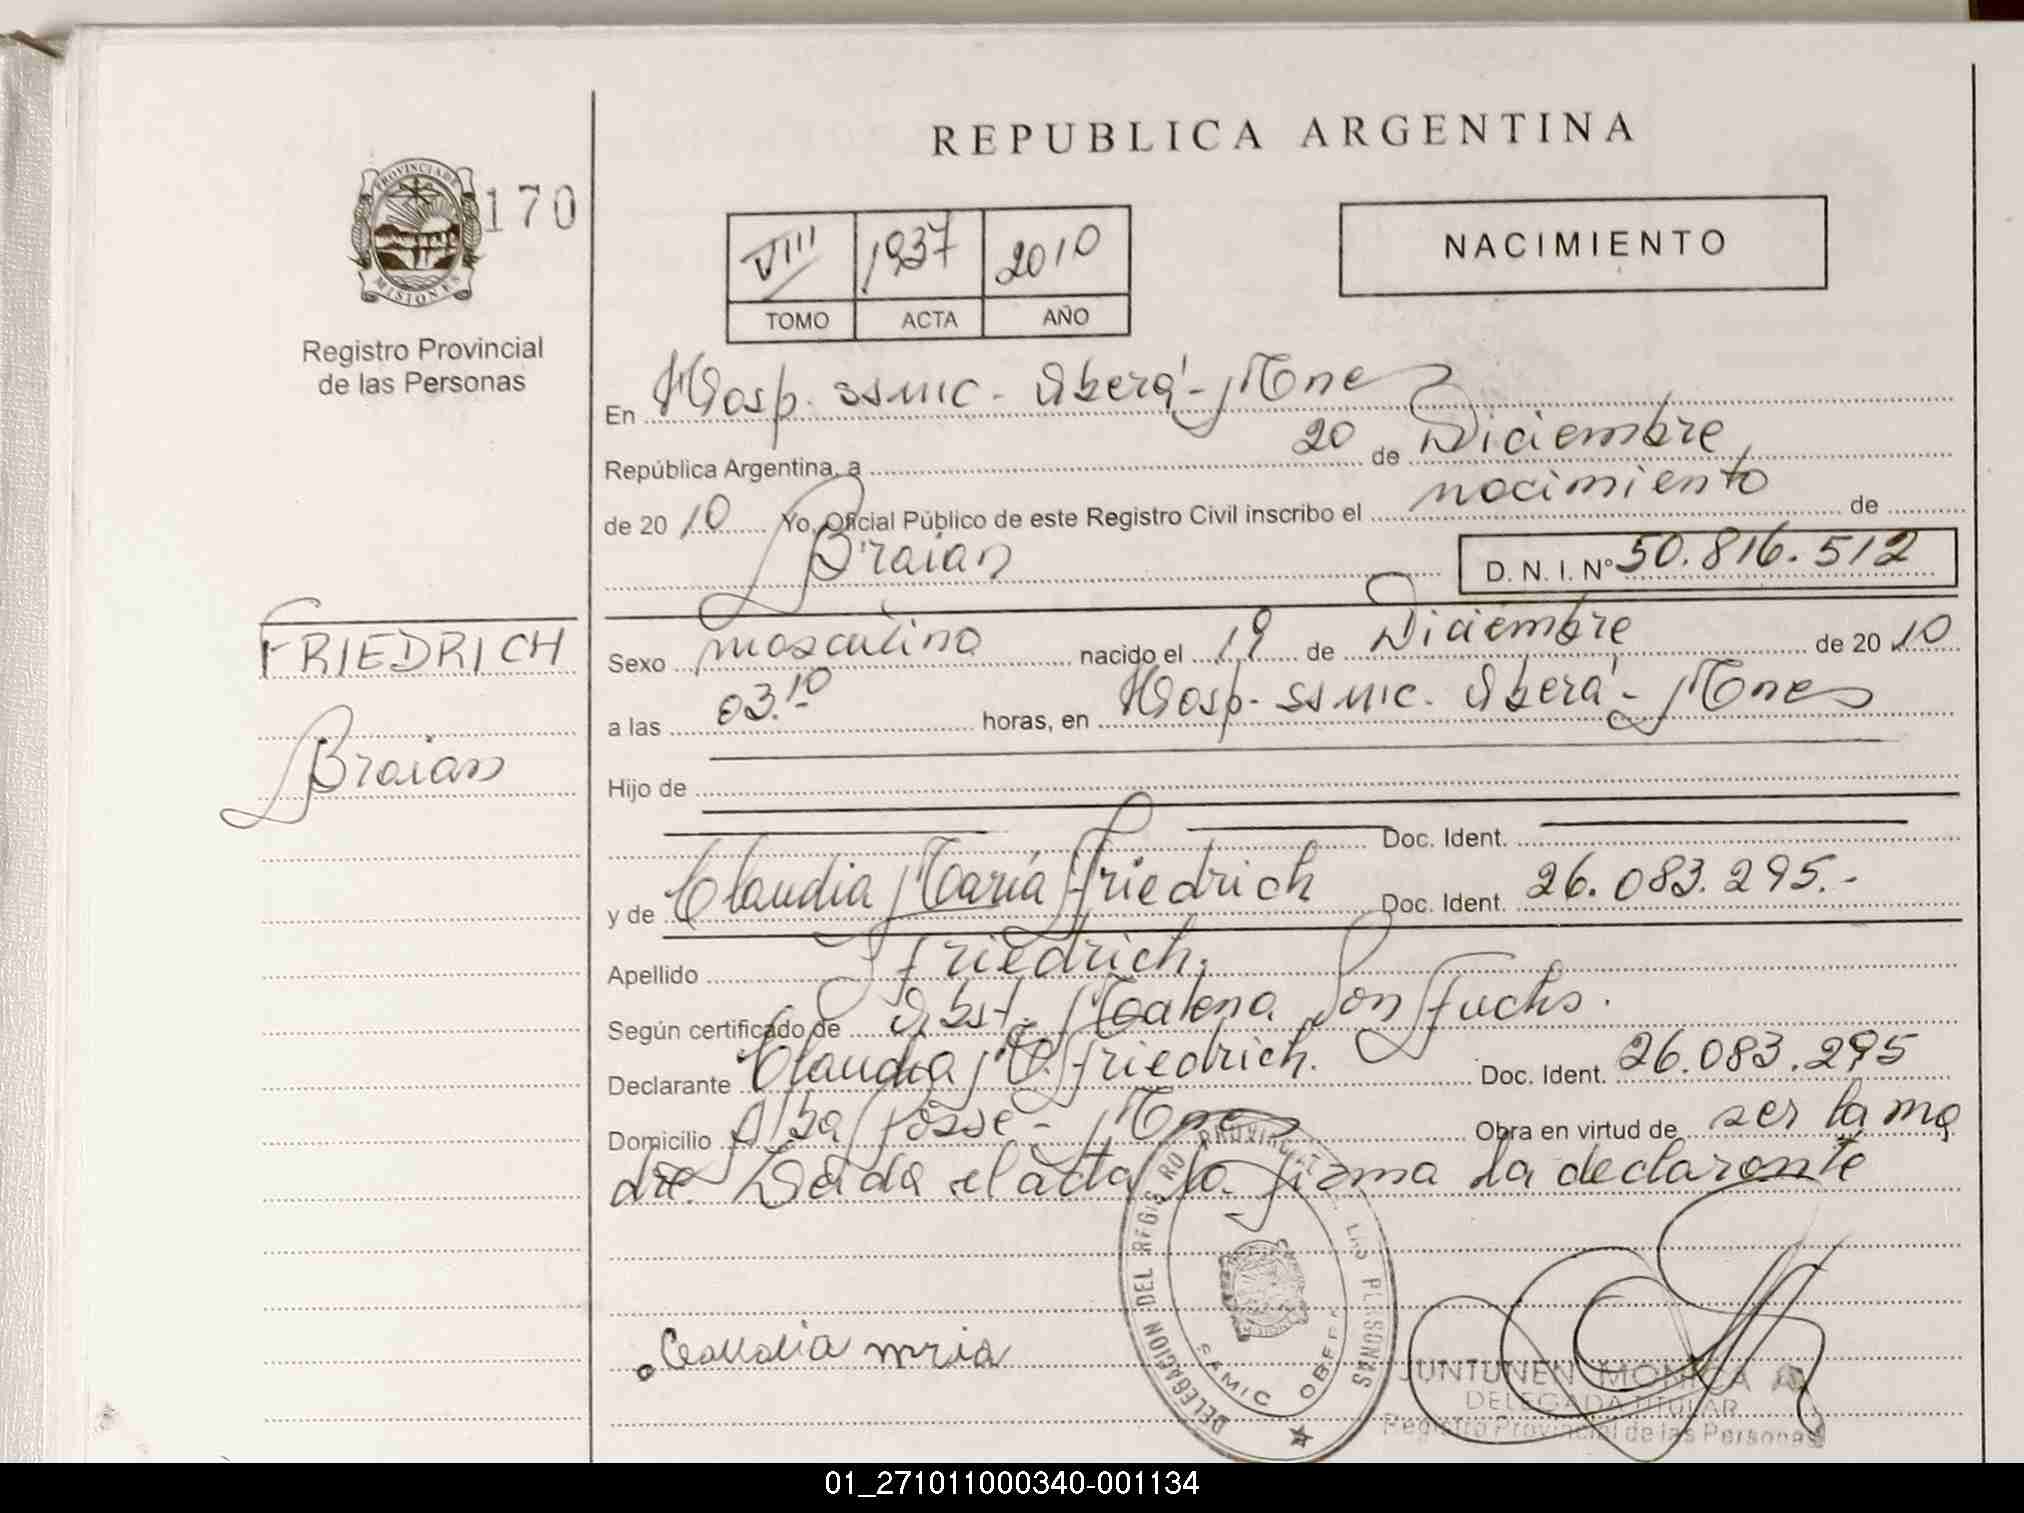 REPUBLICA ARGENTINA
PROVINCIA DE
MISIONES
170
Registro Provincial
de las Personas
VIII 1937 2010
TOMO ACTA AÑO
NACIMIENTO
En Hosp. SSMIC - Oberá - Mnes
República Argentina, a 20 de Diciembre
de 2010 Yo, Oficial Público de este Registro Civil inscribo el nacimiento de
Braian D. N. I. Nº 50.816.512
FRIEDRICH
Braian
Sexo masculino nacido el 19 de Diciembre de 2010
a las 03.10 horas, en Hosp. SSMIC. Oberá - Mnes
Hijo de
Doc. Ident.
y de Claudia María Friedrich Doc. Ident. 26.083.295.-
Apellido Friedrich.
Según certificado de Obst. Malena Fuchs.
Declarante Claudia M. Friedrich. Doc. Ident. 26.083.295
Domicilio Alba Posse - Mnes Obra en virtud de ser la ma
dre. Leída el acta la firma la declarante
DELEGACION DEL REGISTRO PROVINCIAL DE LAS PERSONAS
SAMIC OBERA
Claudia mria
JUNTUNEN MONICA
DELEGADA TITULAR
Registro Provincial de las Personas
01_271011000340-001134